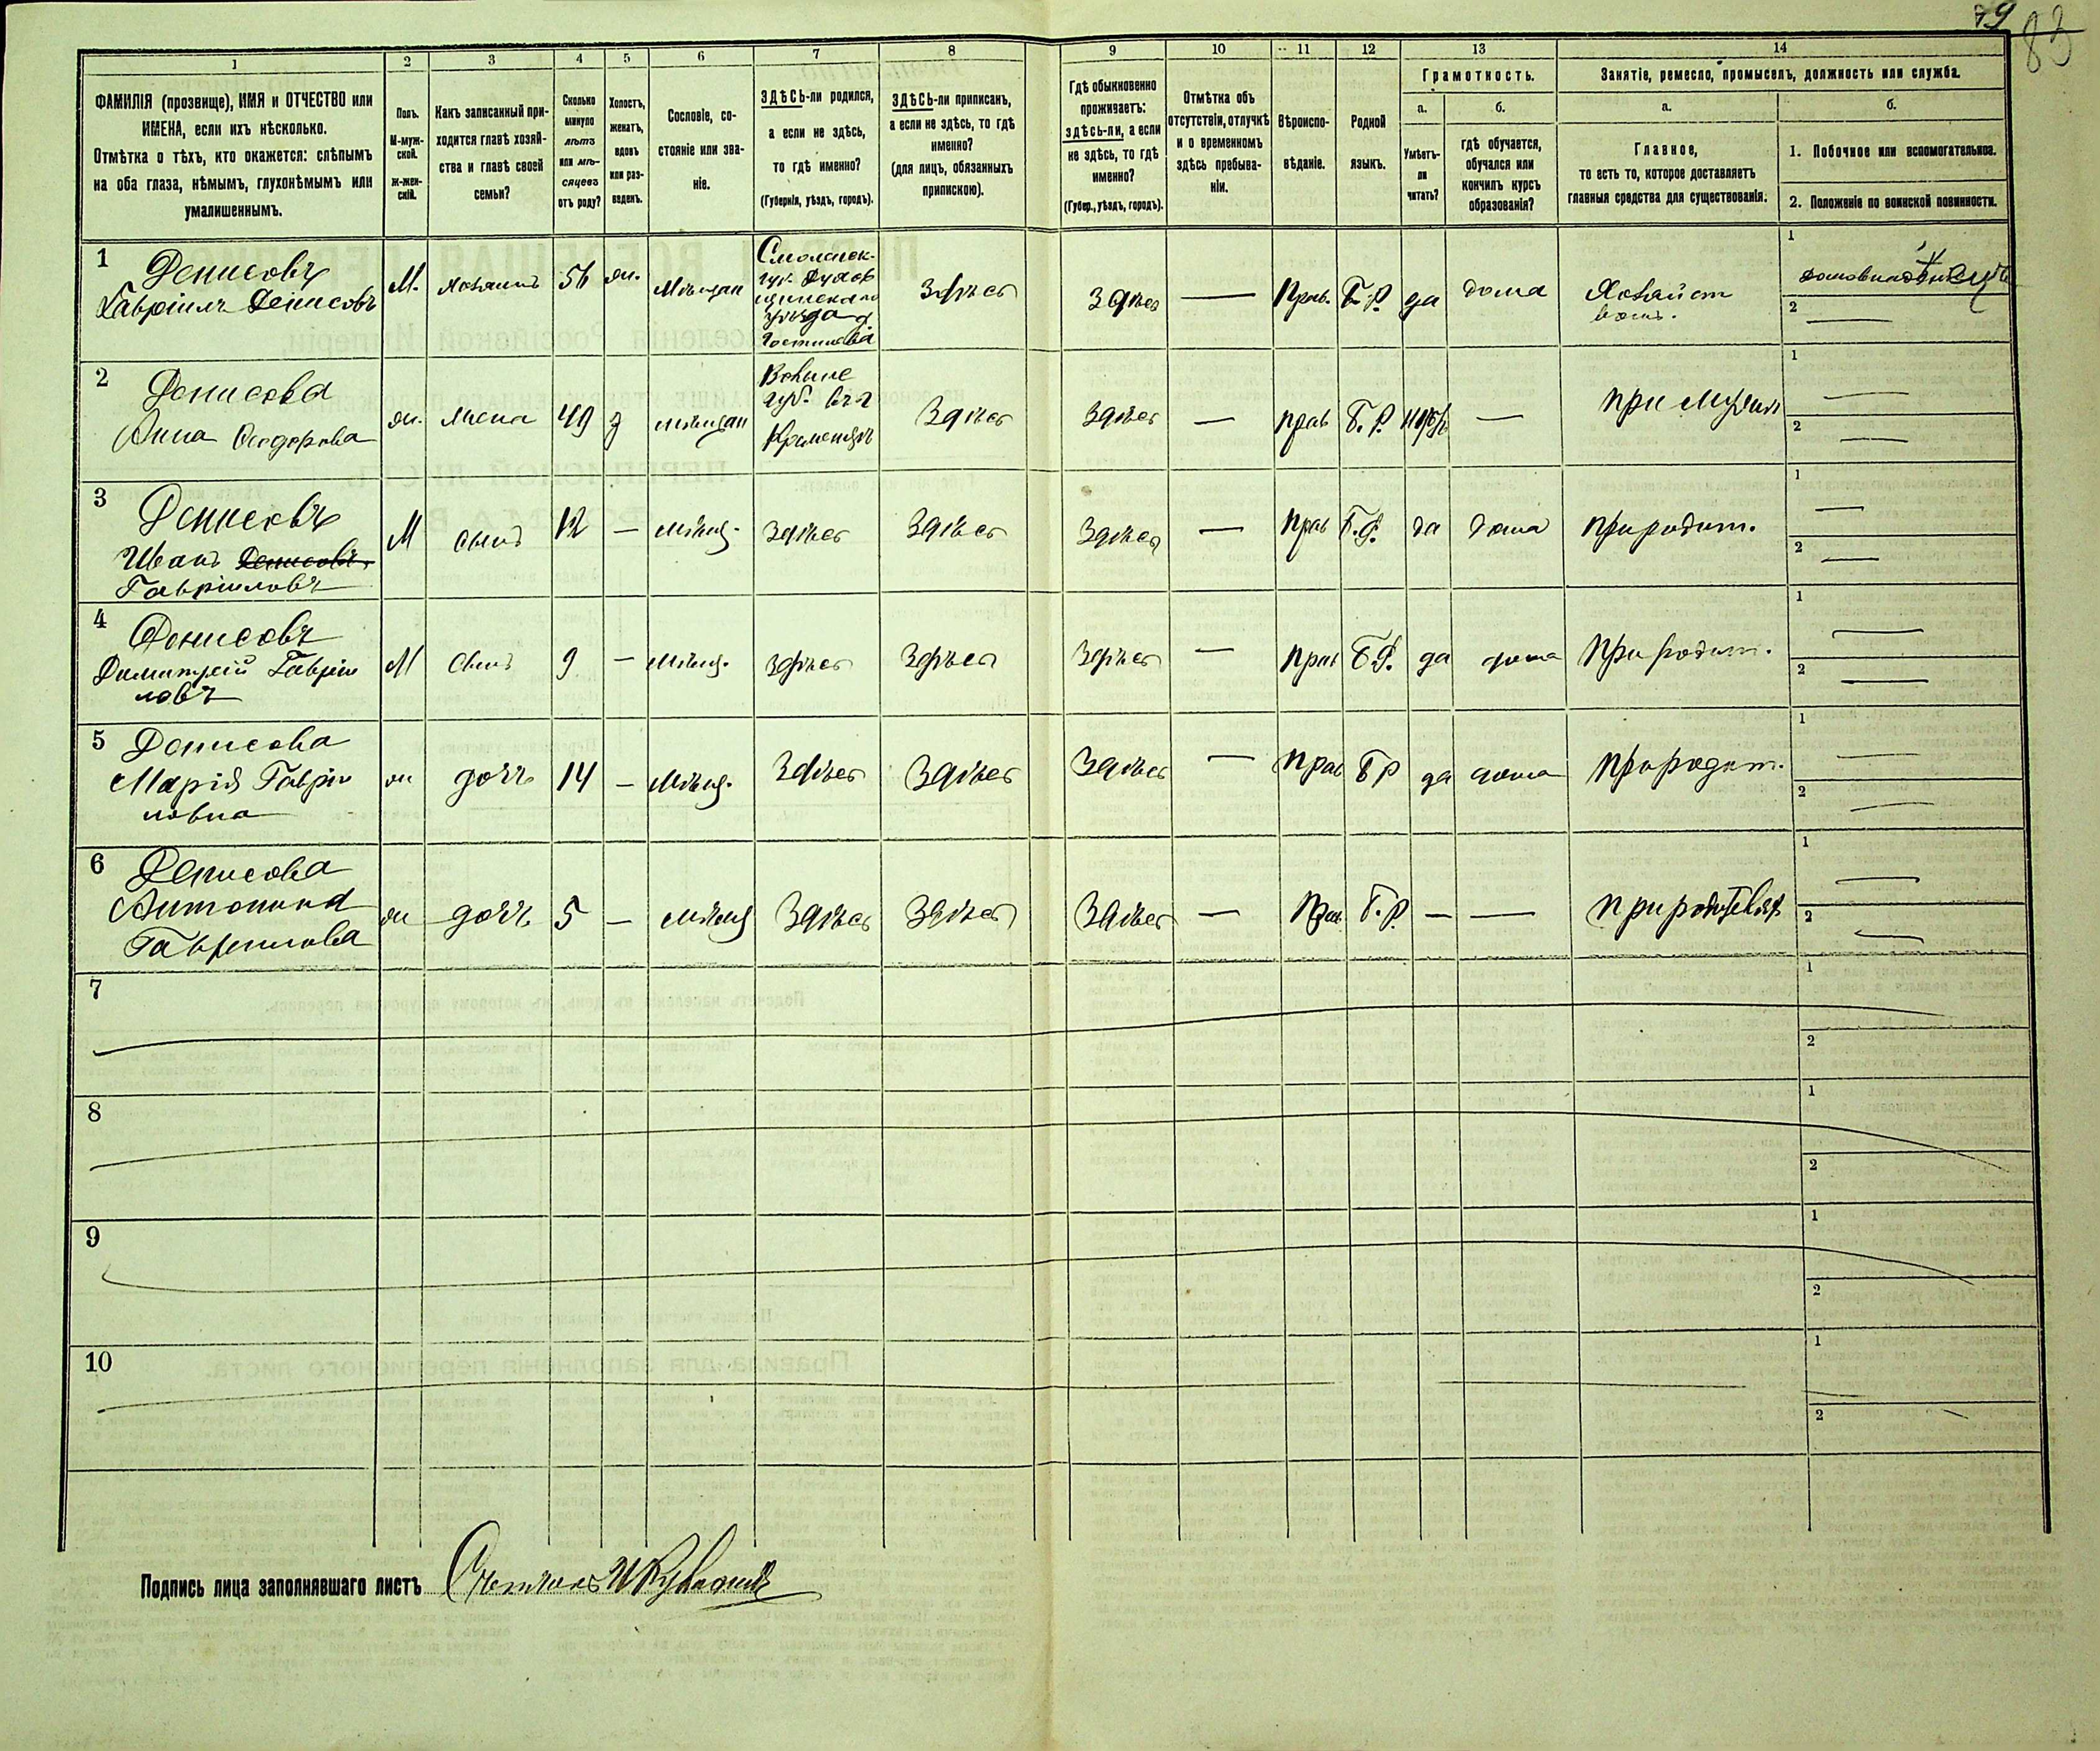 79
83
1 2 3 4 5 6 7 8 9 10 11 12 13 14
ФАМИЛІЯ (прозвище), ИМЯ и ОТЧЕСТВО или
ИМЕНА, если ихъ нѣсколько.
Отмѣтка о тѣхъ, кто окажется: слѣпымъ
на оба глаза, нѣмымъ, глухонѣмымъ или
умалишеннымъ.
Полъ.
М-муж-
ской.
ж-жен-
скій.
Какъ записанный при-
ходится главѣ хозяй-
ства и главѣ своей
семьи?
Сколько
минуло
лѣтъ
или мѣ-
сяцевъ
отъ роду?
Холостъ,
женатъ,
вдовъ
или раз-
веденъ.
Сословіе, со-
стояніе или зва-
ніе.
ЗДѢСЬ-ли родился,
а если не здѣсь,
то гдѣ именно?
(Губернія, уѣздъ, городъ).
ЗДѢСЬ-ли приписанъ,
а если не здѣсь, то гдѣ
именно?
(для лицъ, обязанныхъ
припискою).
Гдѣ обыкновенно
проживаетъ:
здѣсь-ли, а если
не здѣсь, то гдѣ
именно?
(Губер., уѣздъ, городъ).
Отмѣтка объ
отсутствіи, отлучкѣ
и о временномъ
здѣсь пребыва-
ніи.
Вѣроиспо-
вѣданіе.
Родной
языкъ.
Грамотность.
а.
Умѣетъ-
ли
читать?
б.
гдѣ обучается,
обучался или
кончилъ курсъ
образованія?
Занятіе, ремесло, промыселъ, должность или служба.
а.
Главное,
то есть то, которое доставляетъ
главныя средства для существованія.
б.
1. Побочное или вспомогательное.
2. Положеніе по воинской повинности.
1
Денисовъ
Гавріилъ Денисовъ
М. хозяинъ 56 ж. мѣщан
Смоленск.
губ. Духов
щинскаго
уѣзда
здѣсь здѣсь — Прав. Б.Р. да дома
Хозяйст
вомъ.
1
2 —
2
Денисова
Анна Сидорова
ж. жена 49 з мѣщан
губ.
Кременецъ
Здѣсь Здѣсь — прав Б.Р. нѣтъ — при мужѣ
1 —
2 —
3
Денисовъ
Иванъ Денисовъ
Гавріиловъ
М сынъ 12 — мѣщ. здѣсь здѣсь здѣсь — прав Б.Р. да дома при родит.
1 —
2 —
4
Денисовъ
Димитрій Гавріи
ловъ
М сынъ 9 — мѣщ. здѣсь здѣсь здѣсь — прав Б.Р. да дома При родит.
1 —
2 —
5
Денисова
Марія Гаврiи
ловна
ж дочь 14 — мѣщ. Здѣсь Здѣсь Здѣсь — прав Б Р да дома при родит.
1 —
2 —
6
Денисова
Антонина
Гавріилова
ж дочь 5 — мѣщ Здѣсь Здѣсь Здѣсь — Прав Б.Р. — — при родителяхъ
1 —
2 —
7
1
2
8
1
2
9
1
2
10
1
2
Подпись лица заполнявшаго листъ Счетчикъ